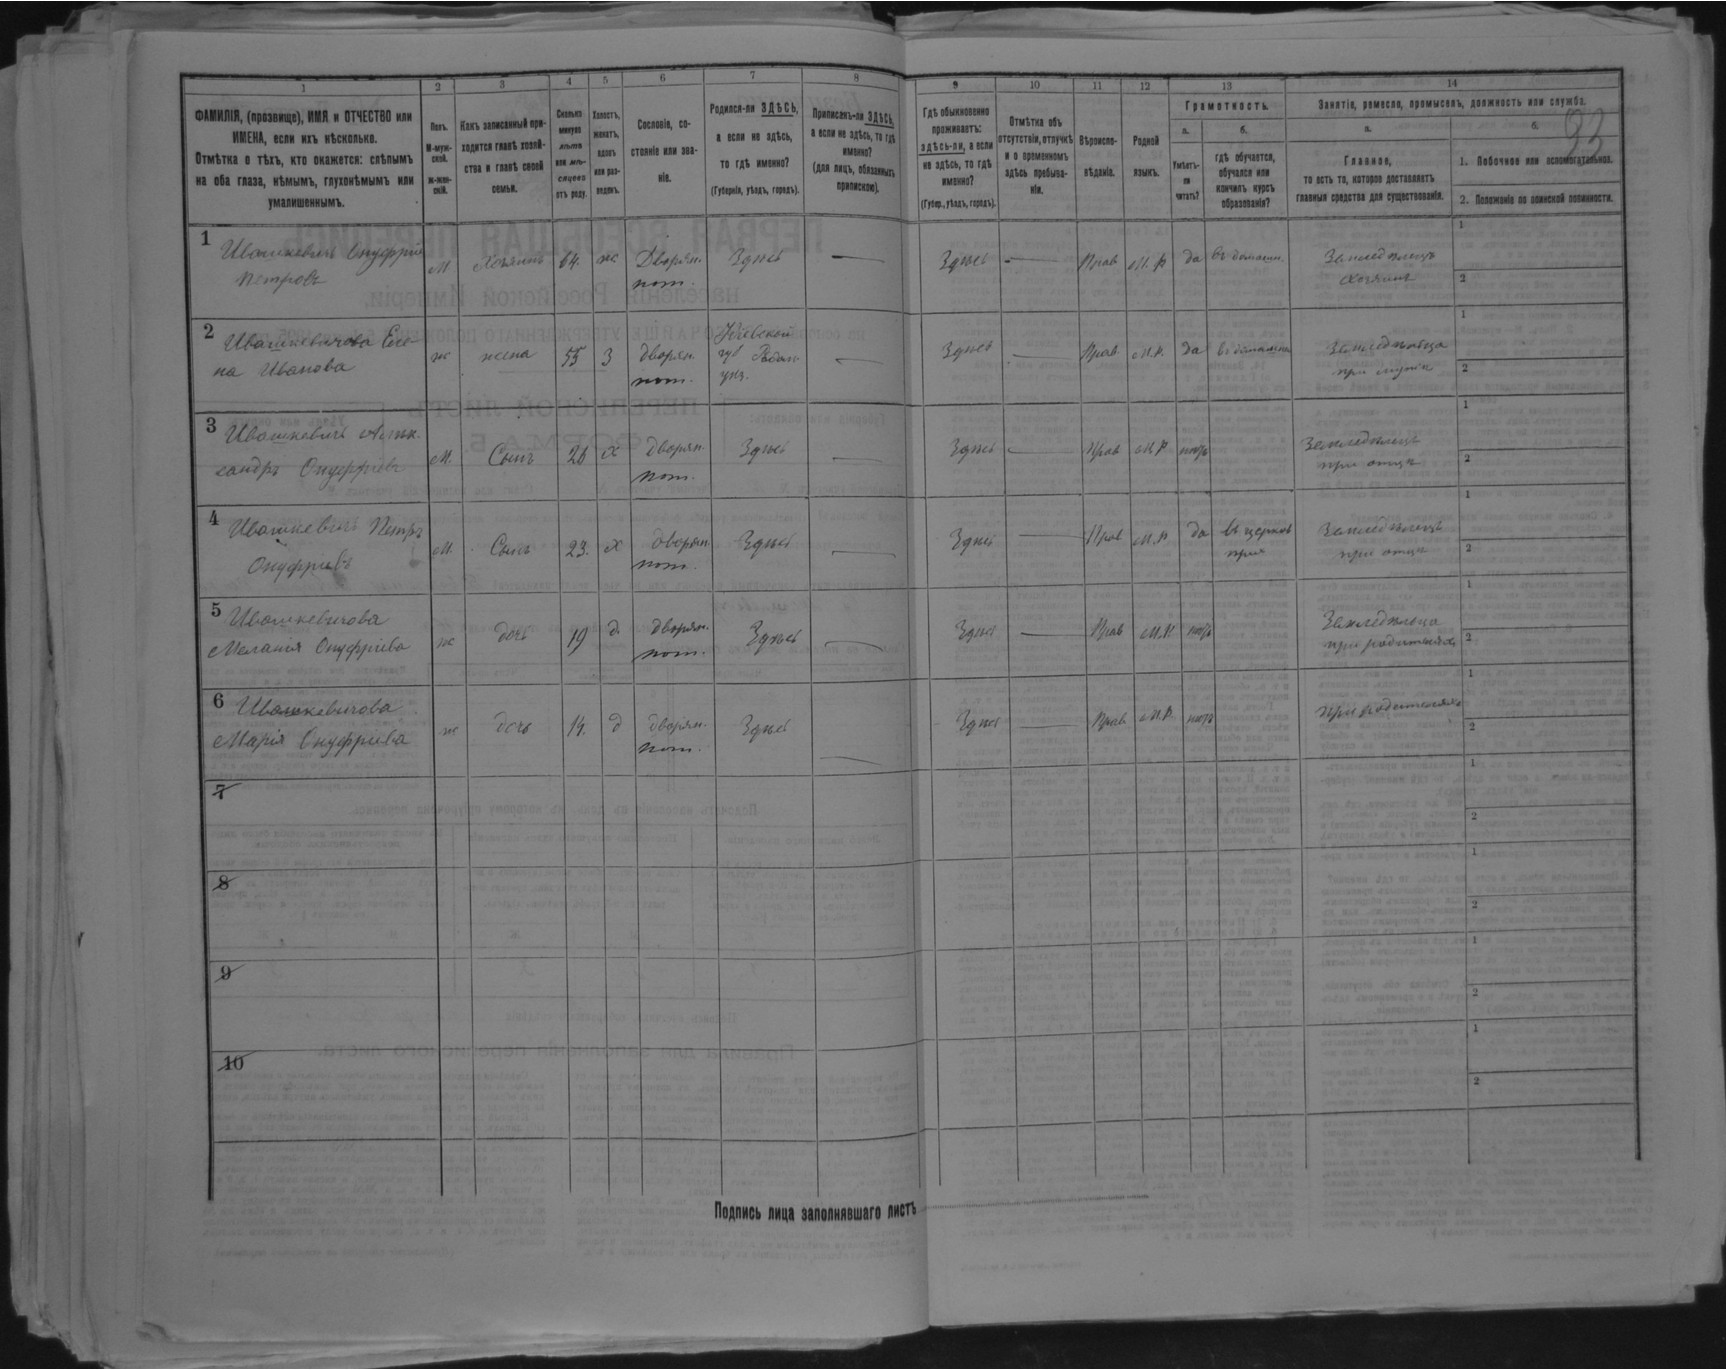 1
2
3
4
5
6
7
8
9
10
11
12
13
14
ФАМИЛІЯ, (прозвище), ИМЯ и ОТЧЕСТВО или
ИМЕНА, если ихъ нѣсколько.
Отмѣтка о тѣхъ, кто окажется: слѣпымъ
на оба глаза, нѣмымъ, глухонѣмымъ или
умалишеннымъ.
Полъ.
М-муж-
ской.
ж-жен-
скій.
Какъ записанный при-
ходится главѣ хозяй-
ства и главѣ своей
семьи.
Сколько
минуло
лѣтъ
или мѣ-
сяцевъ
отъ роду.
Холостъ,
женатъ,
вдовъ
или раз-
веденъ.
Сословіе, со-
стояніе или зва-
ніе.
Родился-ли ЗДѢСЬ,
а если не здѣсь,
то гдѣ именно?
(Губернія, уѣздъ, городъ).
Приписанъ-ли ЗДѢСЬ,
а если не здѣсь, то гдѣ
именно?
(для лицъ, обязанныхъ
припискою).
Гдѣ обыкновенно
проживаетъ:
здѣсь-ли, а если
не здѣсь, то гдѣ
именно?
(Губер., уѣздъ, городъ).
Отмѣтка объ
отсутствіи, отлучкѣ
и о временномъ
здѣсь пребыва-
ніи.
Вѣроиспо-
вѣданіе.
Родной
языкъ.
Грамотность.
а.
б.
Умѣетъ-
ли
читать?
гдѣ обучается,
обучался или
кончилъ курсъ
образованія?
Занятіе, ремесло, промыселъ, должность или служба.
а.
б.
93
Главное,
то есть то, которое доставляетъ
главныя средства для существованія.
1. Побочное или вспомогательное.
2. Положеніе по воинской повинности.
1
Ивашкевичъ Онуфрій
Петровъ
М
Хозяинъ
64.
ж
Дворян.
пот.
Здѣсь
Здѣсь
Прав
М. Р
да
въ домашн.
Земледѣлецъ
хозяинъ
1
2
2
Ивашкевичова Еле-
на Иванова
ж
жена
55
З
дворян.
пот.
Кіевской
губ
уѣз.
Здѣсь
Прав.
М.Р.
да
въ домашн
при мужѣ
1
2
3
Ивашкевичъ Алек-
сандръ Онуфріевъ
М.
Сынъ
26
Х
дворян.
пот.
Здѣсь
Здѣсь
Прав
М.Р
нѣтъ
Земледѣлецъ
при отцѣ
1
2
4
Ивашкевичъ Петръ
Онуфріевъ
М.
Сынъ
23.
Х
дворян.
пот.
Здѣсь
Здѣсь
Прав
М.Р
да
въ церков
прих
Земледѣлецъ
при отцѣ
1
2
5
Ивашкевичова
Меланія Онуфріева
ж
дочь
19
д.
дворян.
пот.
Здѣсь
Здѣсь
Прав
М.Р
нѣтъ
при родителяхъ
1
2
6
Ивашкевичова
Марія Онуфріева
ж
дочь
14.
д
дворян.
пот.
Здѣсь
Здѣсь
Прав
М.Р.
нѣтъ
при родителяхъ
1
2
7
1
2
8
1
2
9
1
2
10
1
2
Подпись лица заполнявшаго листъ